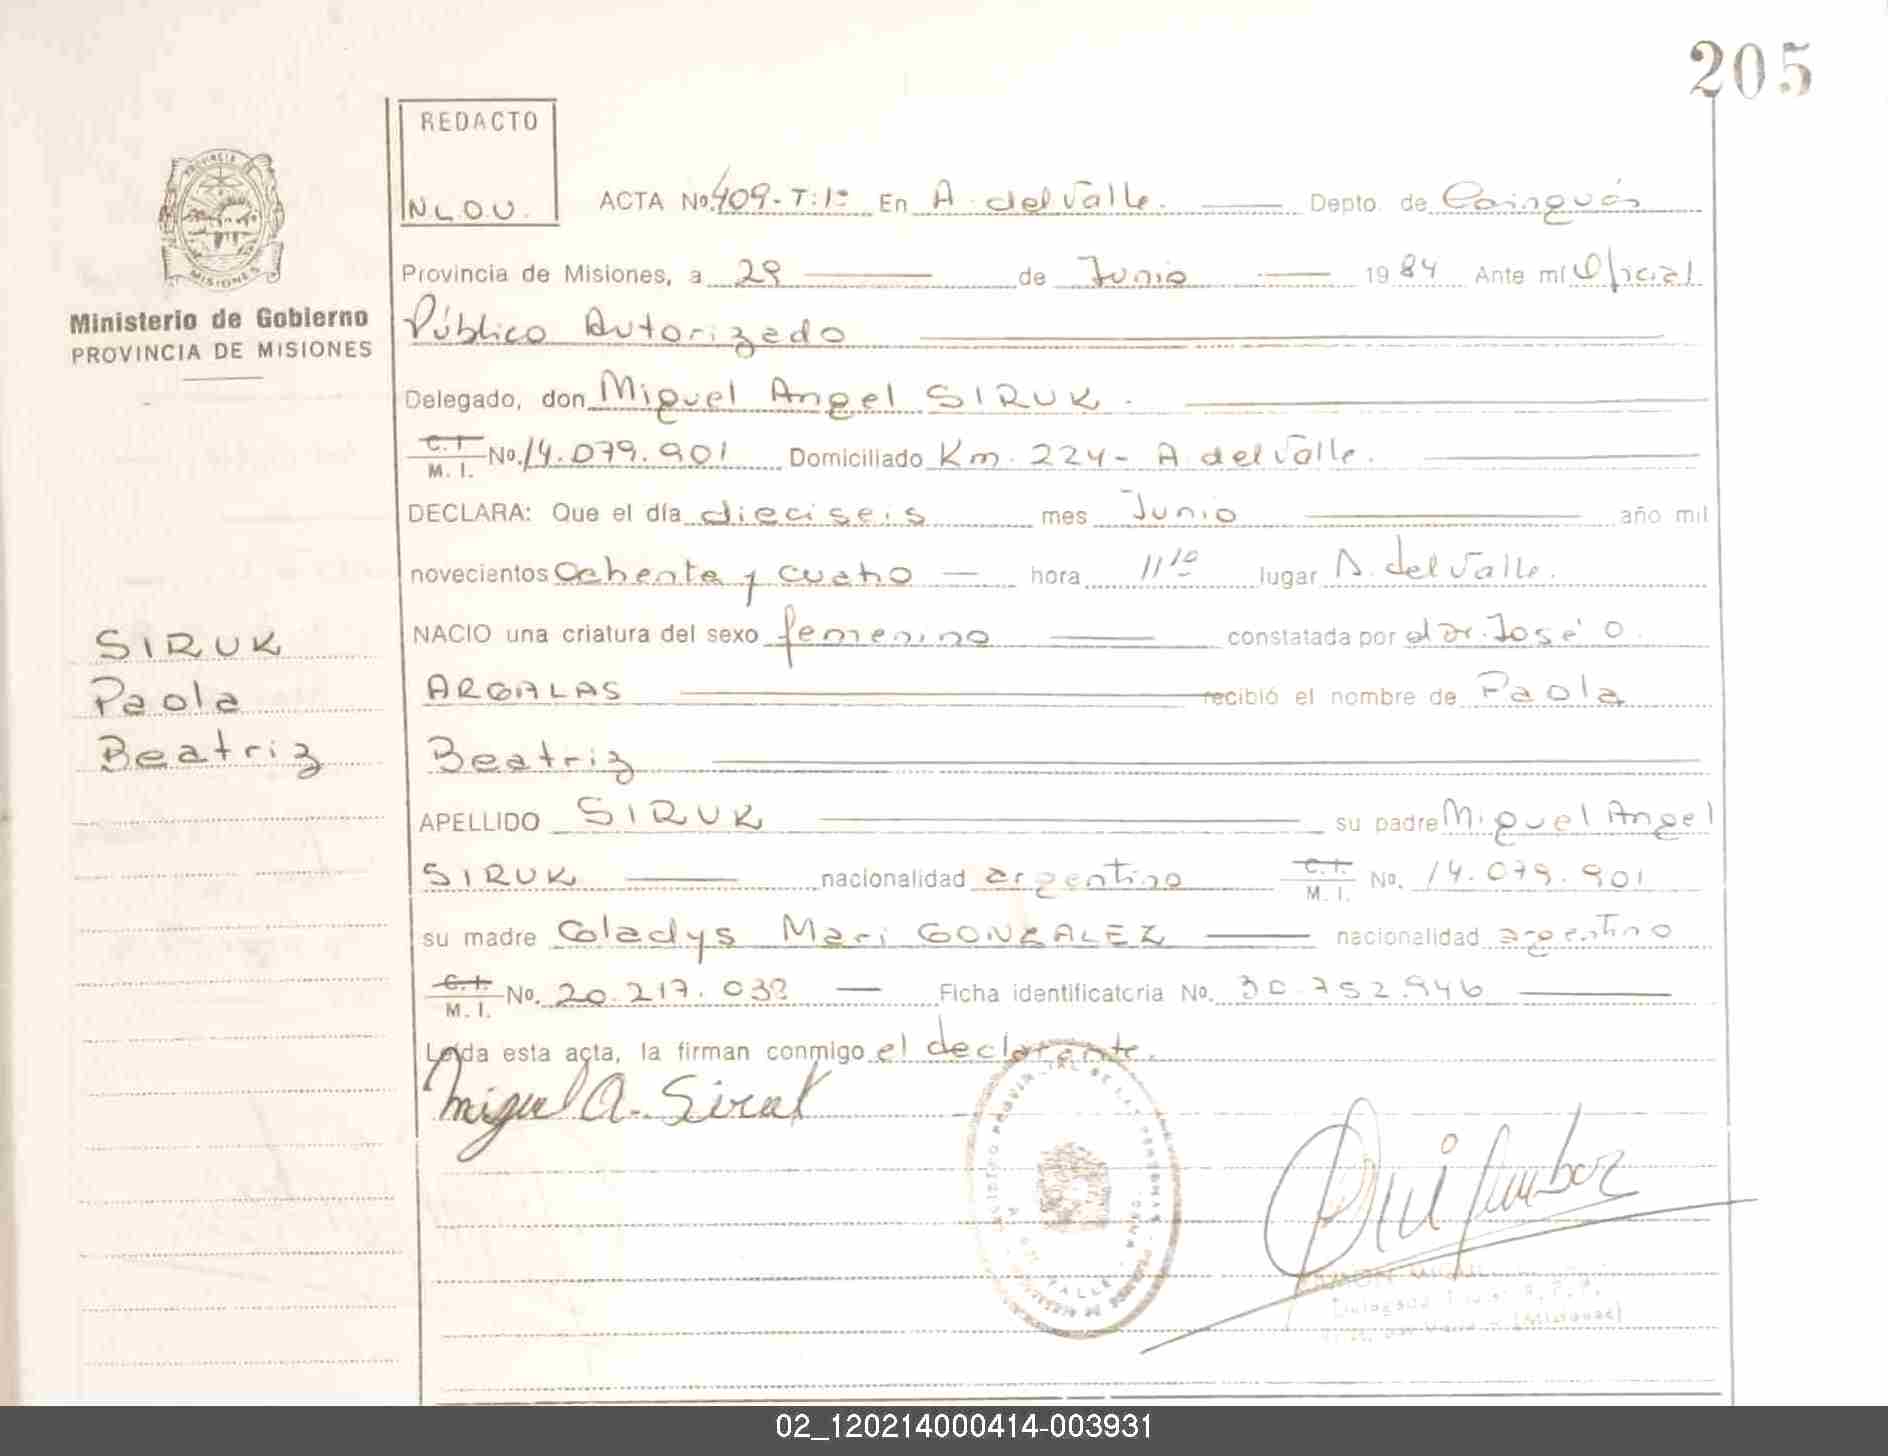 205
REDACTO
N.L.O.U.
ACTA No. 409-T:1º En A. del Valle. Depto. de Cainguás
Provincia de Misiones, a 29 de Junio 1984 Ante mí Oficial
Público Autorizado
Delegado, don Miguel Angel SIRUK.
C.I. M.I. No. 14.079.901 Domiciliado Km. 224- A. del Valle.
DECLARA: Que el día dieciseis mes Junio año mil
novecientos ochenta y cuatro hora 11 10 lugar A. del Valle.
NACIO una criatura del sexo femenino constatada por el Dr. José O.
ARGALAS recibió el nombre de Paola
Beatriz
APELLIDO SIRUK su padre Miguel Angel
SIRUK nacionalidad argentino C.I. M.I. No. 14.079.901
su madre Gladys Mari GONZALEZ nacionalidad argentino
C.I. M.I. No. 20.217.032 Ficha identificatoria No. 30.752.946
Leída esta acta, la firman conmigo el declarente.
Miguel A. Siruk
PROVINCIA DE
MISIONES
Ministerio de Gobierno
PROVINCIA DE MISIONES
SIRUK
Paola
Beatriz
02_120214000414-003931